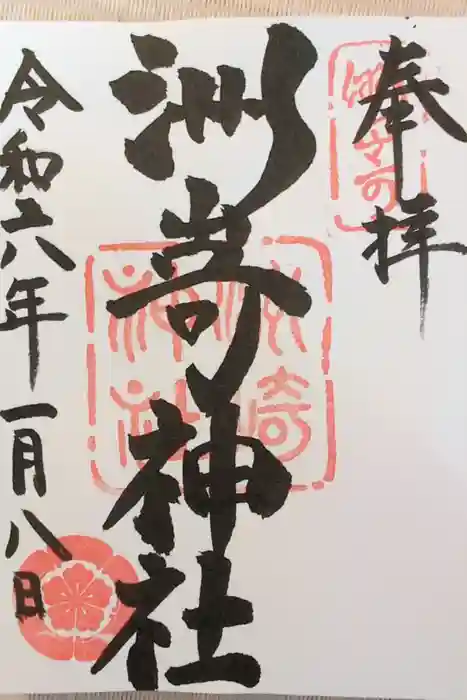 奉拝
洲嵜神社
令和六年一月八日
洲崎神社